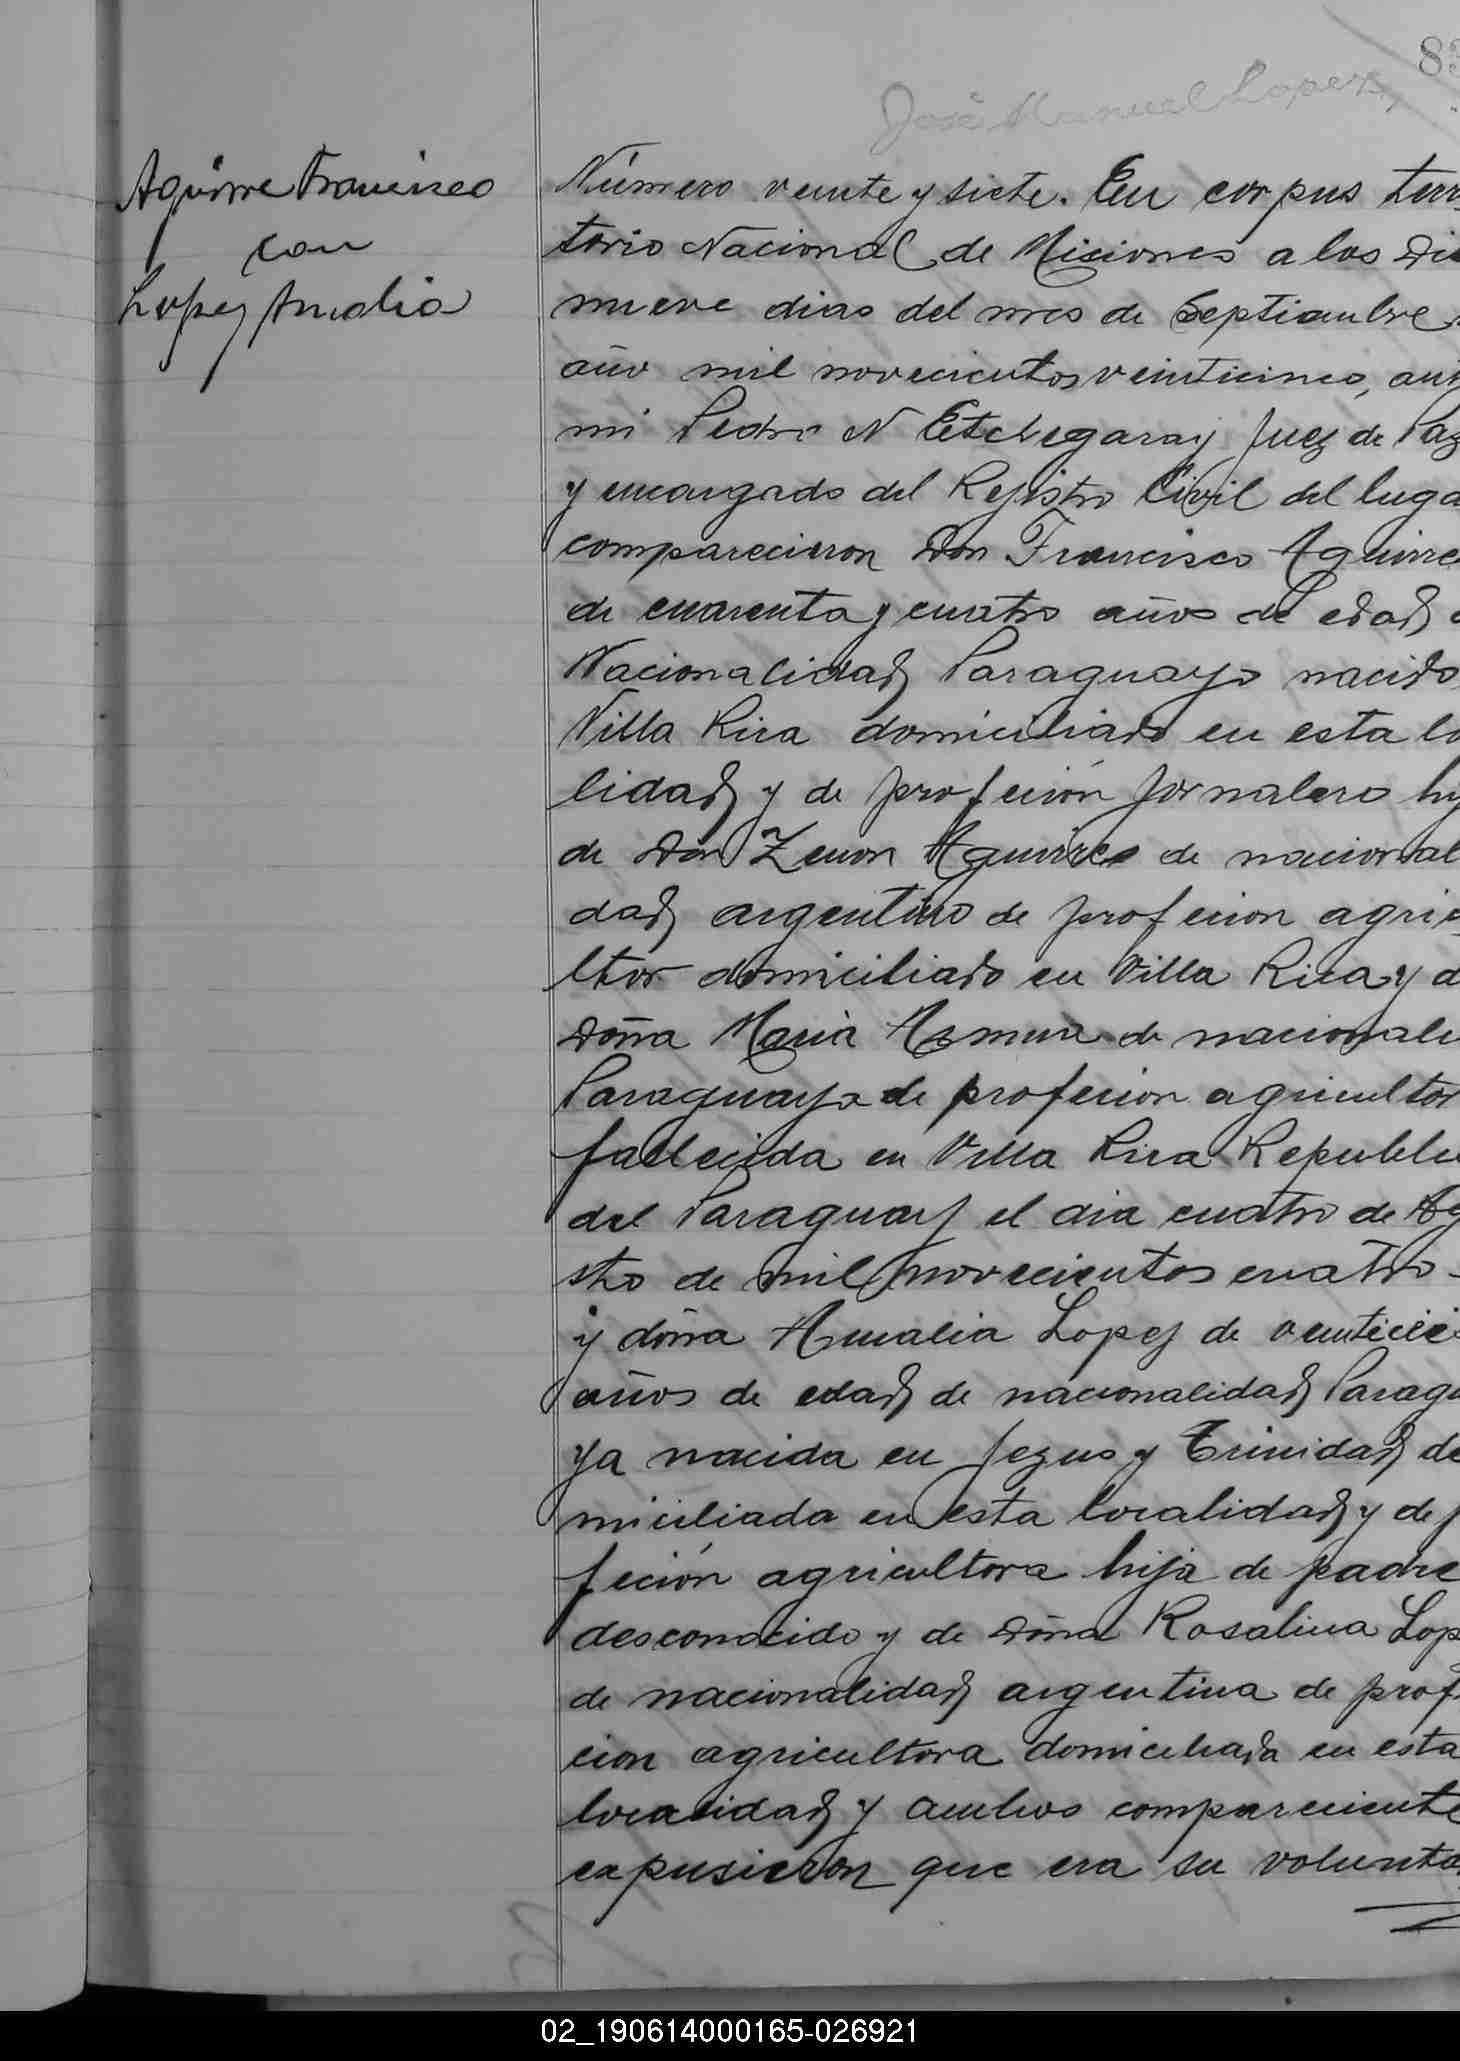 83
José Manuel Lopez
Aguirre Francisco
con
Lopez Amalia
Número veinte y siete. En corpus terri
torio Nacional de Miciones a los Die
nueve dias del mes de Septiembre
año mil novecientos veinticinco, ant
mi Pedro N Etchegaray Juez de Paz
y encargado del Rejistro Civil del luga
comparecieron Don Francisco Aguirre
de cuarenta y cuatro años de edad
Nacionalidad Paraguayo nacido
Villa Rica domiciliado en esta lo
lidad y de profeción jornalero hij
de Don Zenon Aguirre de nacional
dad argentino de profecion agric
ltor domiciliado en Villa Rica y d
Doña Maria de nacionali
Paraguaya de profecion agricultor
fallecida en Villa Rica Republic
del Paraguay el dia cuatro de Ag
sto de mil novecientos cuatro
y doña Amalia Lopez de
años de edad de nacionalidad Paragu
ya nacida en Jezus y Trinidad do
miciliada en esta localidad y de p
feción agricultora hija de padre
desconocido y de doña Rosalina Lop
de nacionalidad argentina de prof
cion agricultora domiciliada en esta
localidad y ambos compareciente
expusieron que era su volunta
02_190614000165-026921